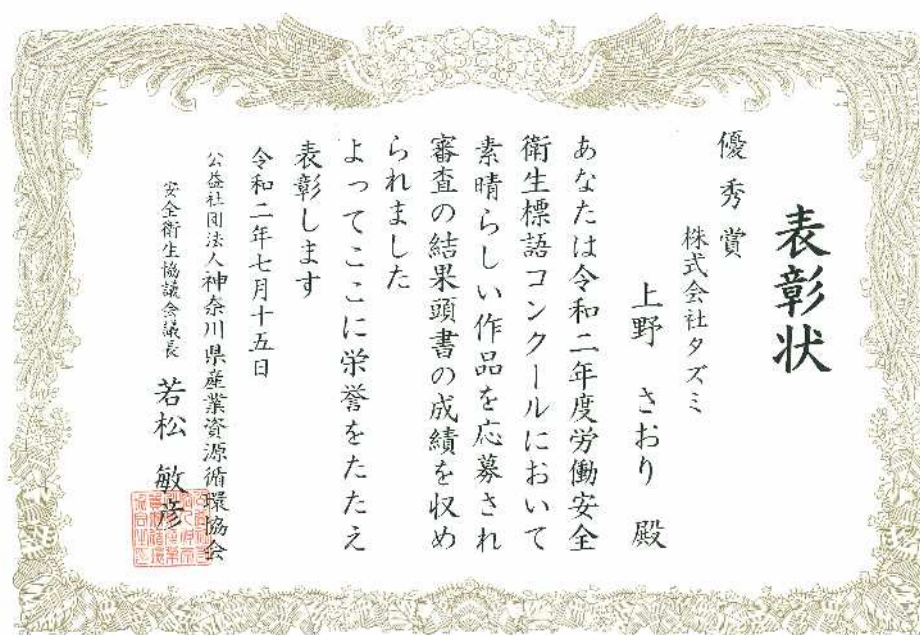 表彰状
優秀賞
株式会社タズミ
上野 さおり 殿
あなたは令和二年度労働安全
衛生標語コンクールにおいて
素晴らしい作品を応募され
審査の結果頭書の成績を収め
られました
よってここに栄誉をたたえ
表彰します
令和二年七月十五日
公益社団法人神奈川県産業資源循環協会
安全衛生協議会議長 若松 敏彦